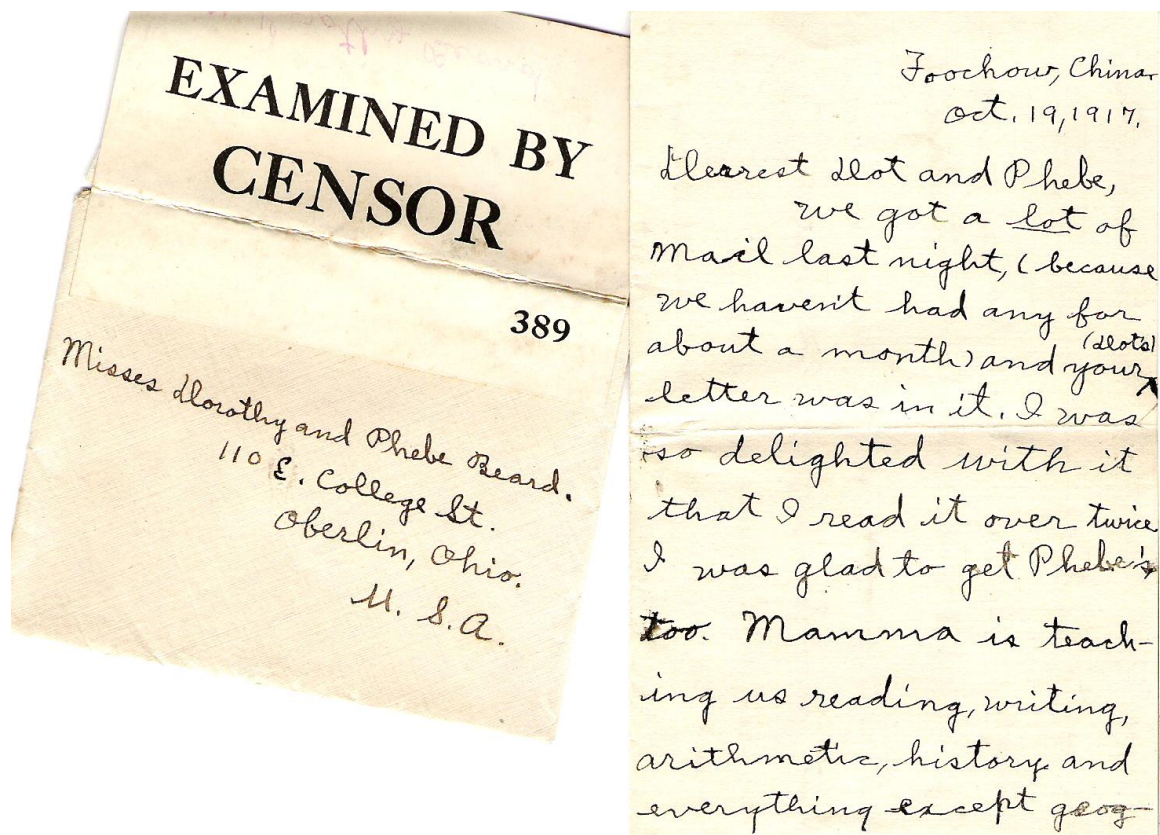 EXAMINED BY
CENSOR
389
Misses Dorothy and Phebe Beard.
110 E. College St.
Oberlin, Ohio.
U. S. A.
Foochow, China.
Oct. 19, 1917.
Dearest Dot and Phebe,
We got a lot of
mail last night, (because
we haven't had any for
about a month) and your (Dot's)
letter was in it. I was
so delighted with it
that I read it over twice
I was glad to get Phebe's
too. Mamma is teach-
ing us reading, writing,
arithmetic, history and
everything except geog-